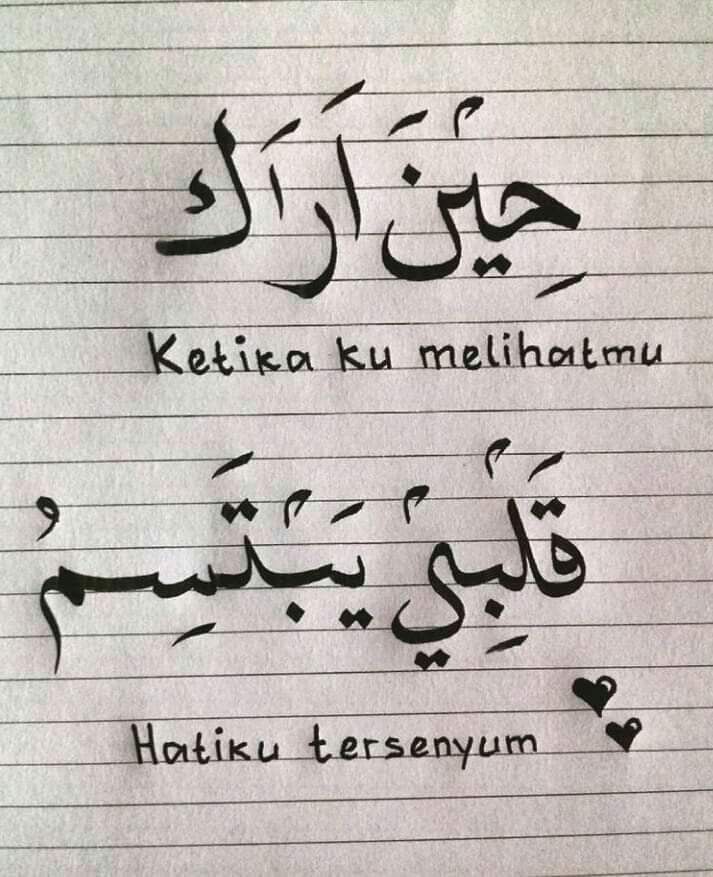 حِيْنَ اَرَاَكَ
Ketika ku melihatmu
قَلْبِيْ يَبْتَسِمُ
Hatiku tersenyum